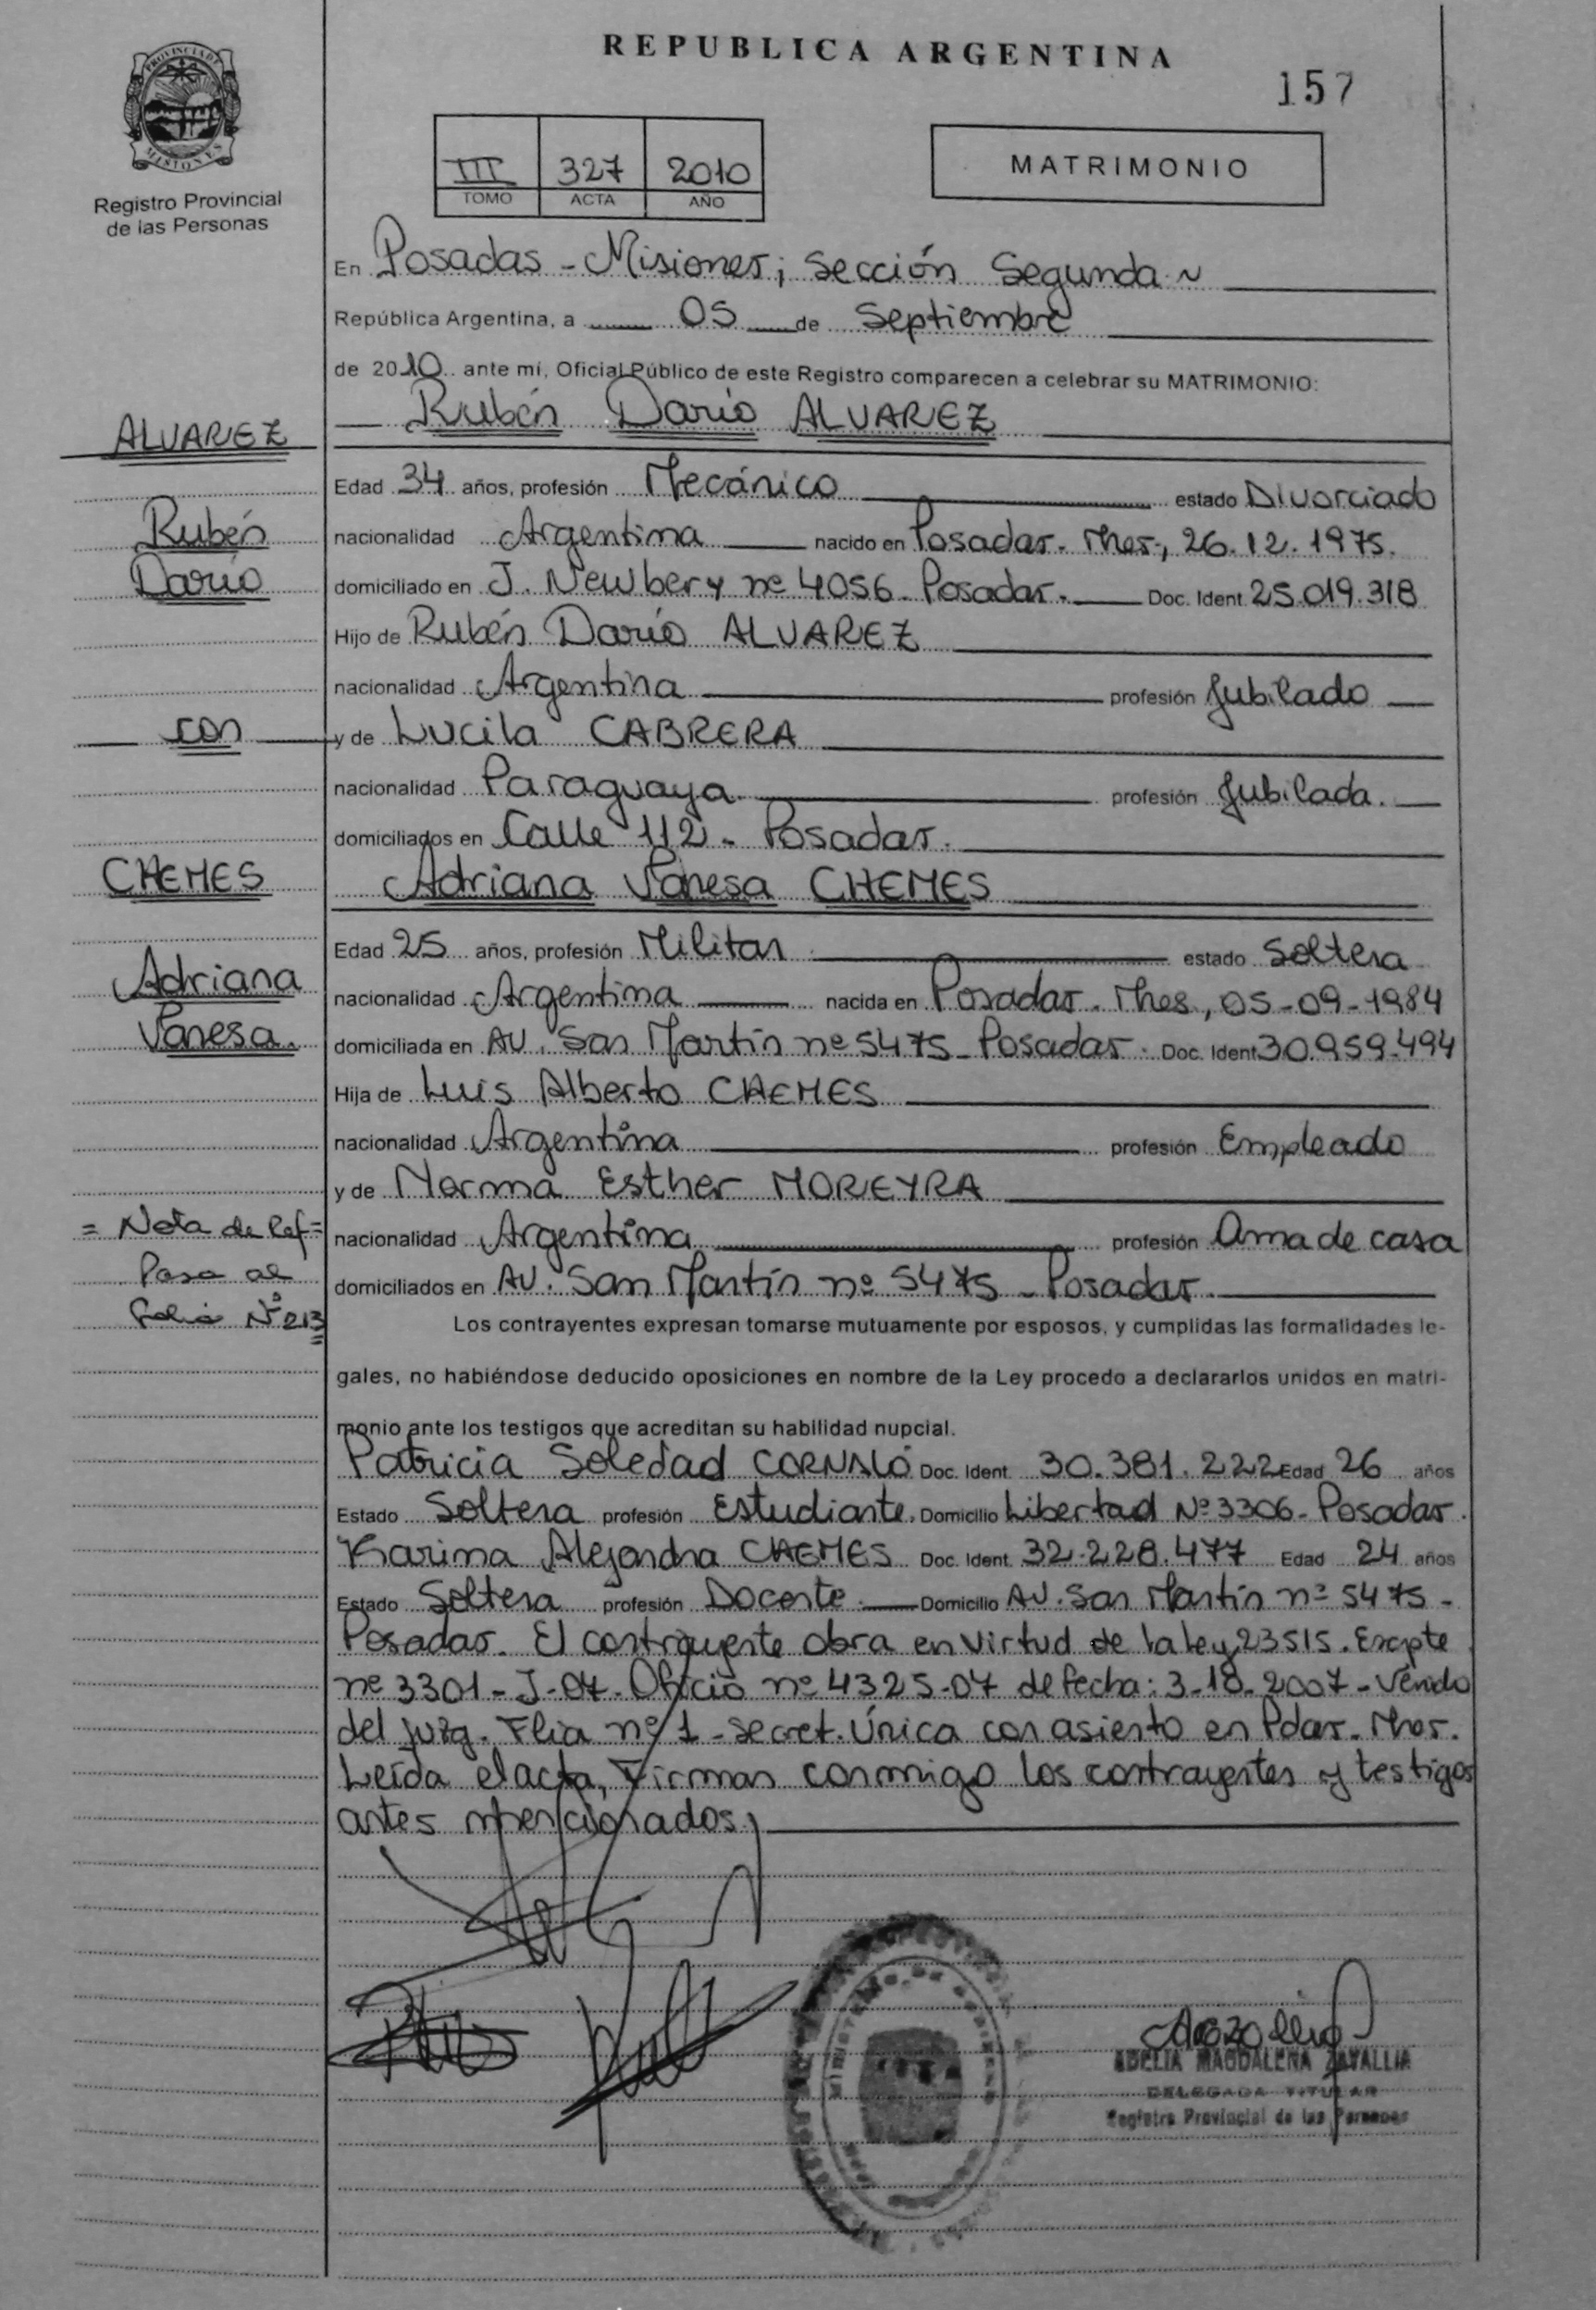 REPUBLICA ARGENTINA
157
PROVINCIA DE
MISIONES
Registro Provincial
de las Personas
III 327 2010
TOMO ACTA AÑO
MATRIMONIO
En Posadas - Misiones; Sección Segunda ~
República Argentina, a 05 de Septiembre
de 2010 ante mí, Oficial Público de este Registro comparecen a celebrar su MATRIMONIO:
Rubén Darío ALVAREZ
ALVAREZ
Edad 34 años, profesión Mecánico estado Divorciado
Rubén
nacionalidad Argentina nacido en Posadas. Mnes, 26.12.1975.
Darío
domiciliado en J. Newbery nº 4056. Posadas. Doc. Ident. 25.019.318
Hijo de Rubén Darío ALVAREZ
nacionalidad Argentina profesión Jubilado
con
y de Lucila CABRERA
nacionalidad Paraguaya profesión Jubilada.
domiciliados en Calle 112 - Posadas.
CHEMES
Adriana Vanesa CHEMES
Edad 25 años, profesión Militar estado Soltera
Adriana
nacionalidad Argentina nacida en Posadas. Mnes, 05-09-1984
Vanesa.
domiciliada en AV. San Martín nº 5475 - Posadas. Doc. Ident. 30.959.494
Hija de Luis Alberto CHEMES
nacionalidad Argentina profesión Empleado
y de Norma Esther MOREYRA
= Nota de Ref =
nacionalidad Argentina profesión Ama de casa
Pasa al
domiciliados en AV. San Martín nº 5475 - Posadas.
folio Nº 213
Los contrayentes expresan tomarse mutuamente por esposos, y cumplidas las formalidades le-
gales, no habiéndose deducido oposiciones en nombre de la Ley procedo a declararlos unidos en matri-
monio ante los testigos que acreditan su habilidad nupcial.
Patricia Soledad CORNALÓ Doc. Ident. 30.381.222 Edad 26 años
Estado Soltera profesión Estudiante. Domicilio Libertad Nº 3306 - Posadas.
Karina Alejandra CHEMES Doc. Ident. 32.228.477 Edad 24 años
Estado Soltera profesión Docente. Domicilio AV. San Martín nº 5475 -
Posadas. El contrayente obra en virtud de la ley 23515. Expte
nº 3301 - J-07. Oficio nº 4325-07 de fecha: 3-10-2007 - Venido
del Juzg. Flia nº 1 - Secret. Única con asiento en Pdas. Mnes.
Leída el acta, Firman conmigo los contrayentes y testigos
antes mencionados,
ADELIA MAGDALENA ZAVALLIA
DELEGADA TITULAR
Registro Provincial de las Personas